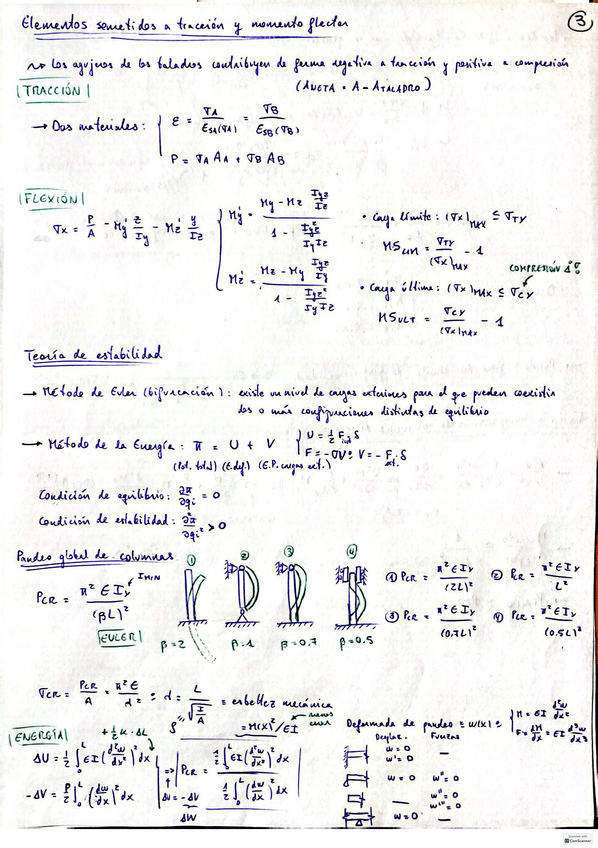 Elementos sometidos a tracción y momento flector
3
~> Los agujeros de los taladros contribuyen de forma negativa a tracción y positiva a compresión
|TRACCIÓN|
(A_NETA = A - A_TALADRO)
→ Dos materiales: { ε = σ_A / E_SA(σ_A) = σ_B / E_SB(σ_B)
P = σ_A A_A + σ_B A_B
|FLEXIÓN|
σ_x = P/A - M_y' z/I_y - M_z' y/I_z
{ M_y' = (M_y - M_z I_yz/I_z) / (1 - I_yz²/(I_y I_z))
M_z' = (M_z - M_y I_yz/I_y) / (1 - I_yz²/(I_y I_z))
• Carga límite: (σ_x)_MAX ≤ σ_TY
MS_LIM = σ_TY/(σ_x)_MAX - 1
COMPRESIÓN
• Carga última: (σ_x)_MAX ≤ σ_CY
MS_ULT = σ_CY/(σ_x)_MAX - 1
Teoría de estabilidad
→ Método de Euler (bifurcación): existe un nivel de cargas exteriores para el que pueden coexistir
dos o más configuraciones distintas de equilibrio
→ Método de la Energía: π = U + V { U = 1/2 F_int δ
(Pot. total) (E.def.) (E.P. cargas ext.) F = -∇V : V = - F_ext. δ
Condición de equilibrio: ∂π/∂q_i = 0
Condición de estabilidad: ∂²π/∂q_i² > 0
Pandeo global de columnas
P_CR = π² E I_y / (βL)²
I_MIN
|EULER|
① ② ③ ④
β=2 β=1 β=0.7 β=0.5
① P_CR = π² E I_y / (2L)² ② P_CR = π² E I_y / L²
③ P_CR = π² E I_y / (0.7L)² ④ P_CR = π² E I_y / (0.5L)²
σ_CR = P_CR/A = π² E/λ² : λ = L/√(I/A) = esbeltez mecánica
|ENERGÍA|
= M(x)²/EI
menos error
ΔU = 1/2 ∫₀ᴸ EI (d²w/dx²)² dx
-ΔV = P/2 ∫₀ᴸ (dw/dx)² dx
=> P_CR = 1/2 ∫₀ᴸ EI (d²w/dx²)² dx / 1/2 ∫₀ᴸ (dw/dx)² dx
ΔU = -ΔV
ΔW
Deformada de pandeo = w(x) : { M = EI d²w/dx²
F = dM/dx = EI d³w/dx³
Desplaz. Fuerzas
w = 0 —
w' = 0
w = 0 w'' = 0
— w'' = 0
w''' = 0
w = 0 —
Scanned with
CamScanner